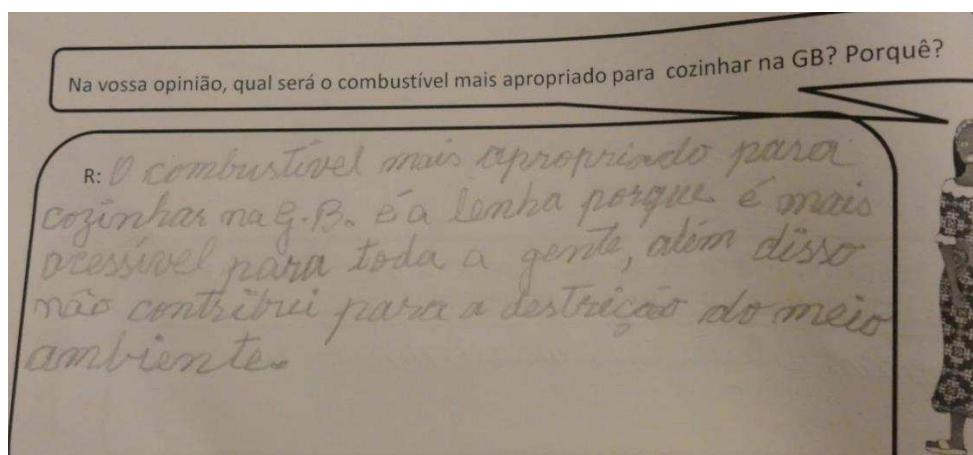 Na vossa opinião, qual será o combustível mais apropriado para cozinhar na GB? Porquê?
R: O combustível mais apropriado para
cozinhar na G.B. é a lenha porque é mais
acessível para toda a gente, além disso
não contribui para a destrição do meio
ambiente.